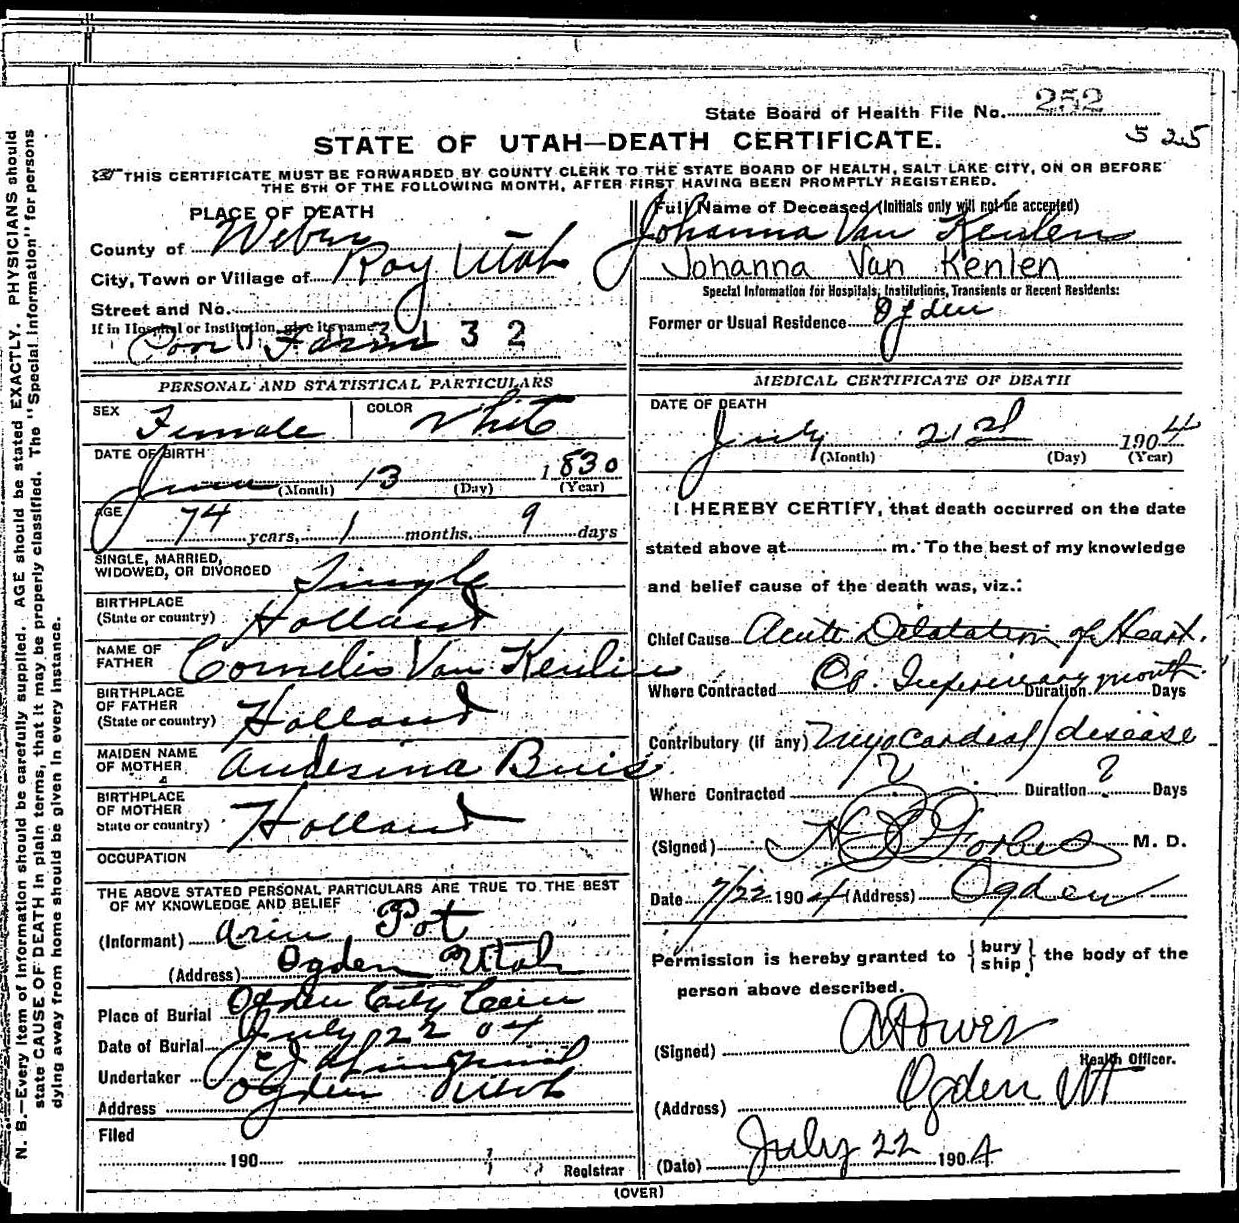 State Board of Health File No. 252
525
STATE OF UTAH—DEATH CERTIFICATE.
THIS CERTIFICATE MUST BE FORWARDED BY COUNTY CLERK TO THE STATE BOARD OF HEALTH, SALT LAKE CITY, ON OR BEFORE
THE 5TH OF THE FOLLOWING MONTH, AFTER FIRST HAVING BEEN PROMPTLY REGISTERED.
PLACE OF DEATH
County of Weber
City, Town or Village of Roy Utah
Street and No.
If in Hospital or Institution, give its name
Poor Farm 3 1 3 2
Full Name of Deceased (Initials only will not be accepted)
Johanna Van Keulen
Johanna Van Kenlen
Special Information for Hospitals, Institutions, Transients or Recent Residents:
Former or Usual Residence Ogden
PERSONAL AND STATISTICAL PARTICULARS
SEX Female COLOR White
DATE OF BIRTH
June (Month) 13 (Day) 1830 (Year)
AGE
74 years, 1 months. 9 days
SINGLE, MARRIED,
WIDOWED, OR DIVORCED Single
BIRTHPLACE
(State or country) Holland
NAME OF
FATHER Cornelis Van Keulen
BIRTHPLACE
OF FATHER
(State or country) Holland
MAIDEN NAME
OF MOTHER Buis
BIRTHPLACE
OF MOTHER
State or country) Holland
OCCUPATION
THE ABOVE STATED PERSONAL PARTICULARS ARE TRUE TO THE BEST
OF MY KNOWLEDGE AND BELIEF
(Informant) Arie Pot
(Address) Ogden Utah
Place of Burial Ogden City Cem
Date of Burial July 22 04
Undertaker
Address Ogden Utah
Filed
190 Registrar
MEDICAL CERTIFICATE OF DEATH
DATE OF DEATH
July (Month) (Day) 1904 (Year)
I HEREBY CERTIFY, that death occurred on the date
stated above at m. To the best of my knowledge
and belief cause of the death was, viz.:
Chief Cause Acute Dilatation of Heart.
Where Contracted Co. Infirmary Duration month Days
Contributory (if any) Myocardial disease
Where Contracted ? Duration ? Days
(Signed) Forbes M. D.
Date 7/22 1904 (Address) Ogden
Permission is hereby granted to {bury ship} the body of the
person above described.
(Signed) Power
Health Officer.
(Address) Ogden Ut
(Date) July 22 1904
(OVER)
N. B.—Every item of information should be carefully supplied. AGE should be stated EXACTLY. PHYSICIANS should
state CAUSE OF DEATH in plain terms, that it may be properly classified. The "Special Information" for persons
dying away from home should be given in every instance.